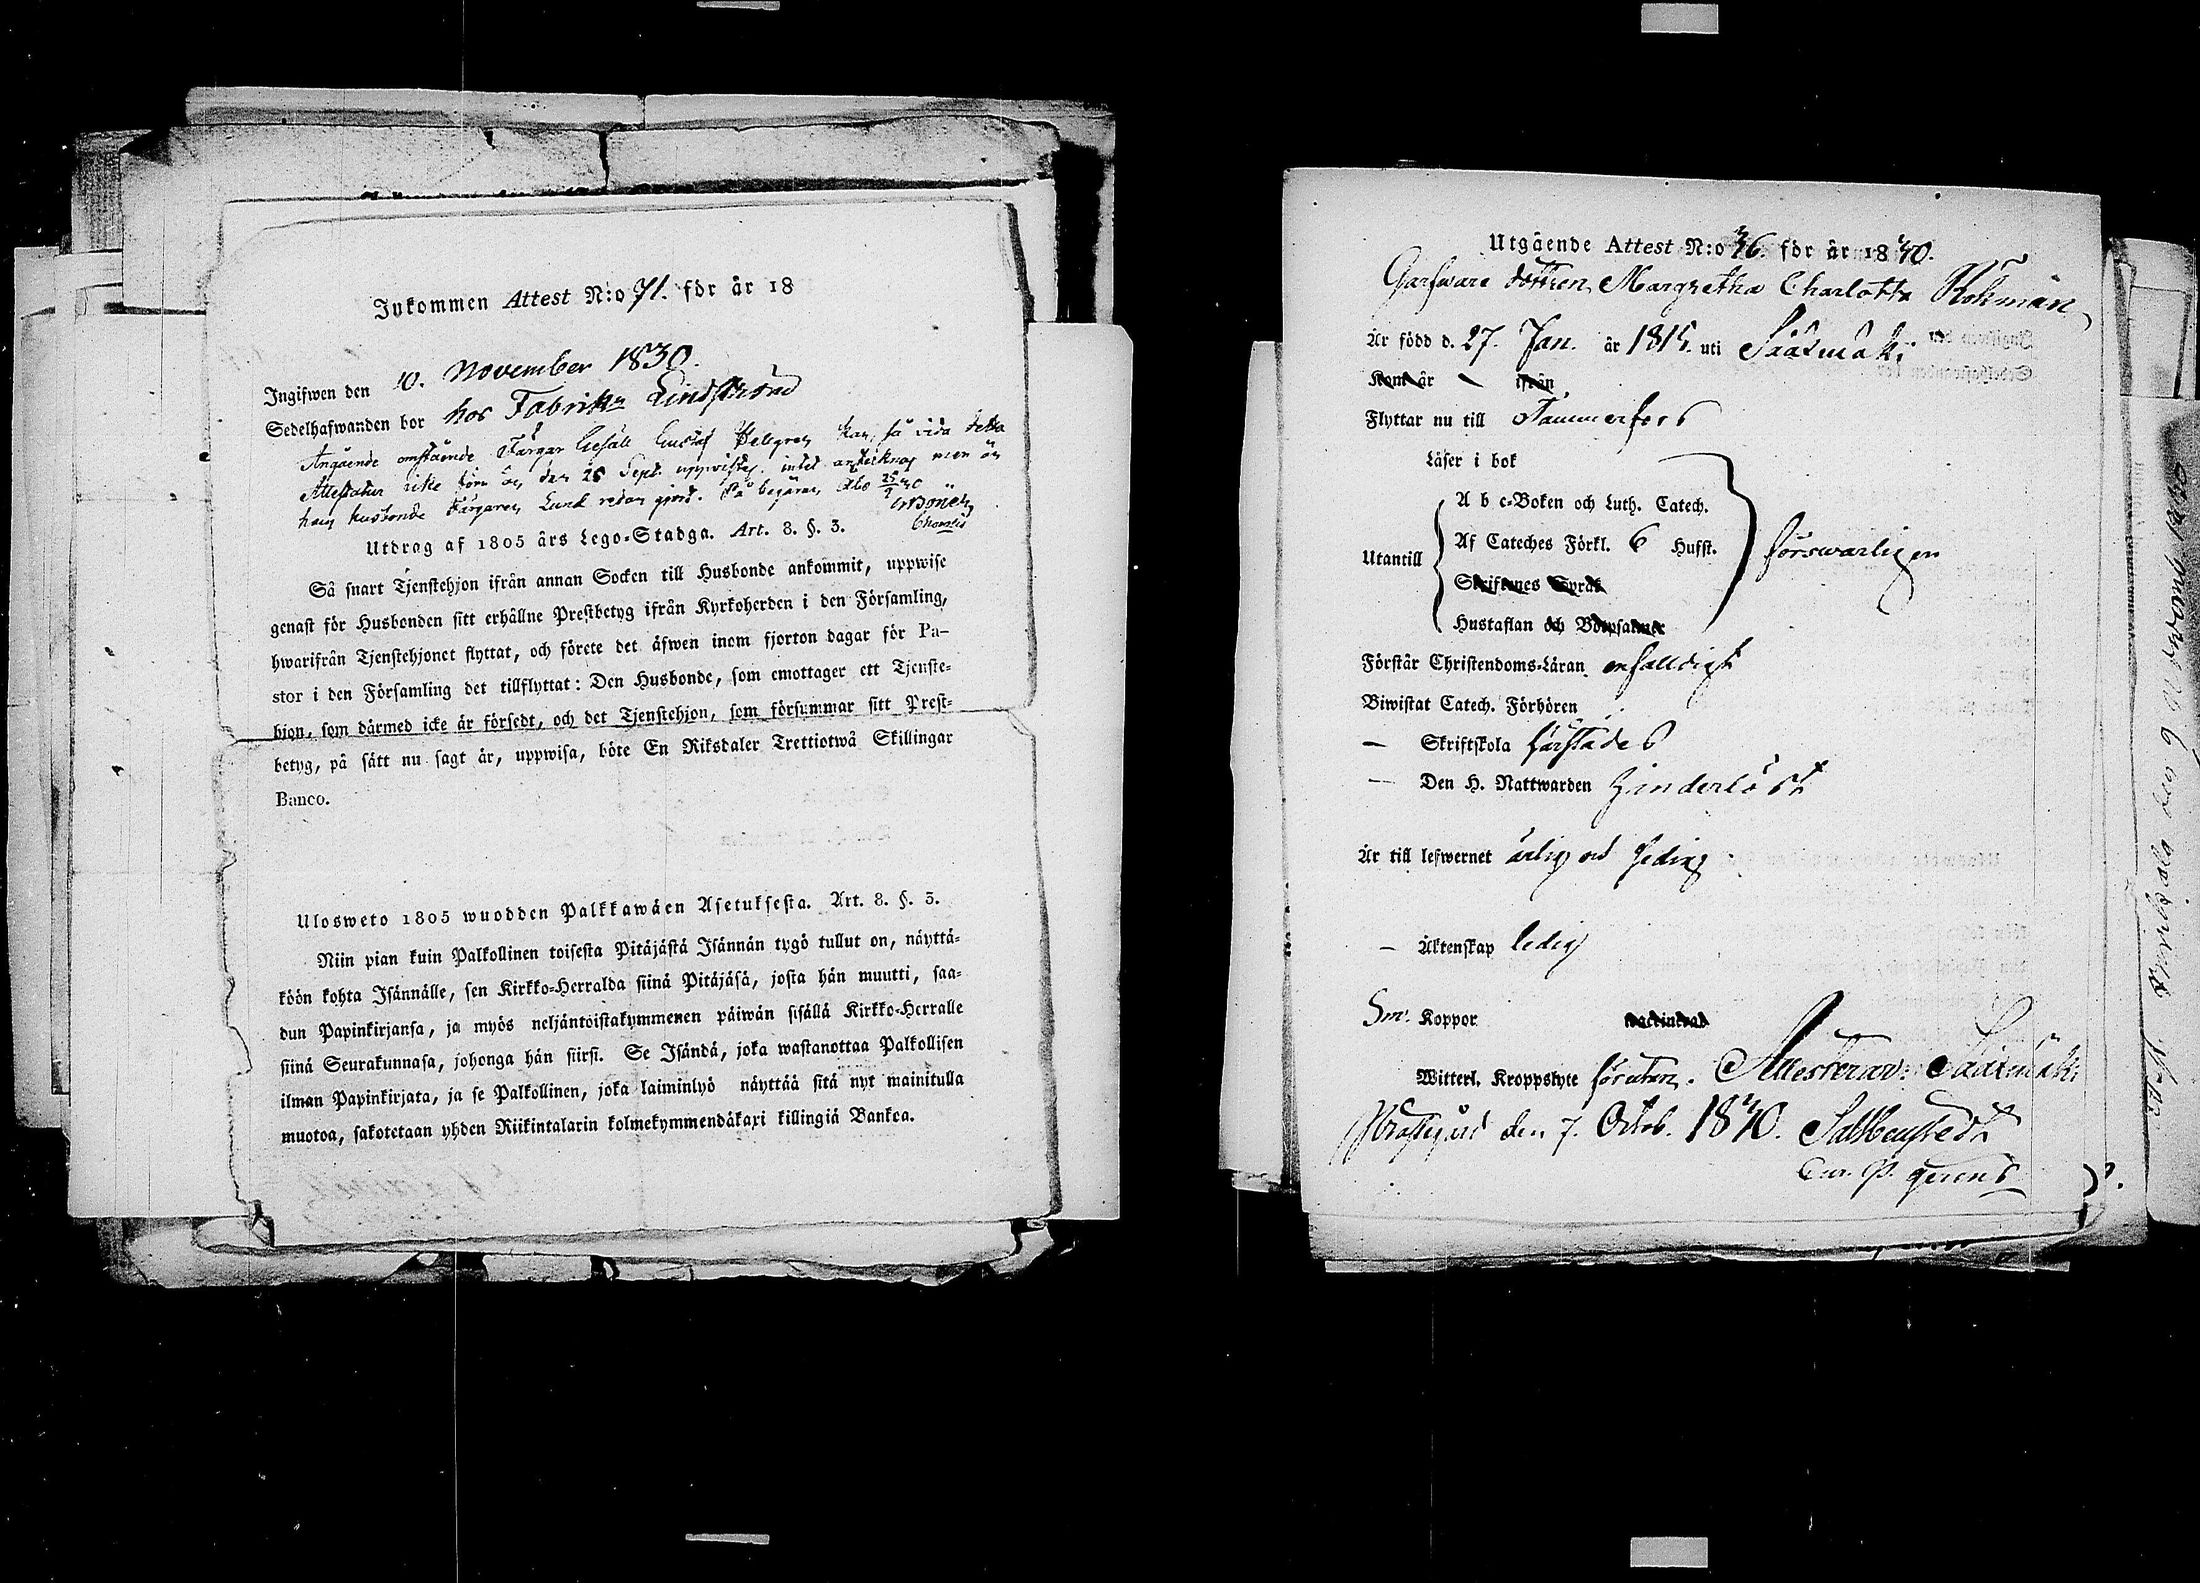 Inkommen Attest N:o 71. för år 18
Ingifwen den 10. November 1830.
Sedelhafwanden bor hos Fabrikn Lindström
Angående omstående Färgar Gesäll Gustaf Helegren kan, så vida detta
Attestatur icke förr än den 25 Sept. uppvistes, intet anteknas men än
hans husbonde Färgaren Lund redan gjort. På begäran Åbo 25/9 30
Utdrag af 1805 års Lego-Stadga. Art. 8. §. 3.
Så snart Tjenstehjon ifrån annan Socken till Husbonde ankommit, uppwise
genast för Husbonden sitt erhållne Prestbetyg ifrån Kyrkoherden i den Församling,
hwarifrån Tjenstehjonet flyttat, och förete det äfwen inom fjorton dagar för Pa-
stor i den Församling det tillflyttat: Den Husbonde, som emottager ett Tjenste-
hjon, som därmed icke är försedt, och det Tjenstehjon, som försummar sitt Prest-
betyg, på sätt nu sagt är, uppwisa, böte En Riksdaler Trettiotwå Skillingar
Banco.
Ulosweto 1805 wuodden Palkkawäen Asetuksesta. Art. 8. §. 3.
Niin pian kuin Palkollinen toisesta Pitäjästä Isännän tygö tullut on, näyttä-
köön kohta Isännälle, sen Kirkko-Herralda siinä Pitäjäsä, josta hän muutti, saa-
dun Papinkirjansa, ja myös neljäntoistakymmenen päiwän sisällä Kirkko-Herralle
siinä Seurakunnasa, johonga hän siirsi. Se Isändä, joka wastanottaa Palkollisen
ilman Papinkirjata, ja se Palkollinen, joka laiminlyö näyttää sitä nyt mainitulla
muotoa, sakotetaan yhden Riikintalarin kolmekymmendäkaxi killingiä Bankca.
Utgående Attest N:o 36. för år 1830.
Garfware dottren Margretha Charlotta Rökman
Är född d. 27. Jan. år 1815. uti Sääxmäki
Kom år – ifrån
Flyttar nu till Tammerfors
Läser i bok
A b c-Boken och Luth. Catech.
Utantill Af Cateches Förkl. 6 Hufst. försvarligen
Skriftenes Språk
Hustaflan och Botpsalmer
Förstår Christendoms-Läran enfalldigt
Biwistat Catech. Förhören
— Skriftskola härstädes
— Den H. Nattwarden hinderlöst
Är till lefwernet ärlig och sedig
— Äktenskap ledig
Sm. Koppor vaccinerad
Witterl. Kroppslyte förutan. Attesterar: Sääxmäki
Prostgård den 7. Octob. 1830.
Cur. P. gerens